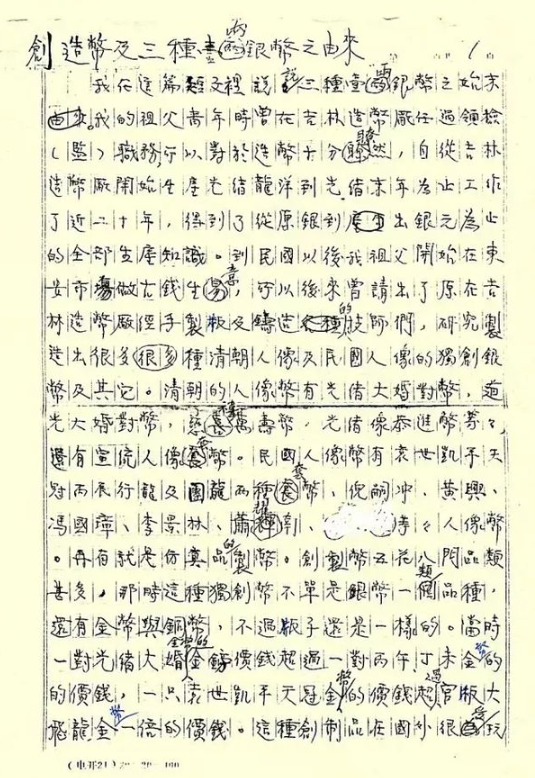 創造幣及三種壹両銀幣之由來
第 頁 1
我在這篇題文裡說說三種壹両銀幣之始末
由來。我的祖父青年時曾在吉林造幣廠任過領檢
(監)職務所以對於造幣十分瞭然,自從吉林
造幣廠開始生產光绪龍洋到光绪末年為止工作
了近二十年,得到了從原銀到出銀元為止
的全部生產知識。到民國以後我祖父開始在東
安市場做古錢生意,所以後來曾請出了原在吉
林造幣廠經手製版及鑄造的技師們,研究製
造出很多很多種清朝人像及民國人像的獨創銀
幣及其它。清朝的人像幣有光绪大婚對幣,道
光大婚對幣,慈禧萬壽幣,光绪像恭進幣等々,
還有宣統人像套幣。民國人像幣有袁世凱平天
冠丙辰行龍及團龍両種套幣,倪嗣冲、黃興、
馮國璋、李景林、蕭耀南、等々人像幣
。再有就是仿真品的製幣。創製幣五花八門品類
甚多,那時這種獨創幣不單是銀幣一類個品種,
還有金幣與銅幣,不過版子還是一樣的。當時
一對光绪大婚金鎊價錢超過一對丙午丁未金幣的
的價錢,一只袁世凱平天冠金幣的價錢超過官版大
飛龍金幣一倍的價錢。這種創制品在國外很受玩
(电开21) 20×20=400